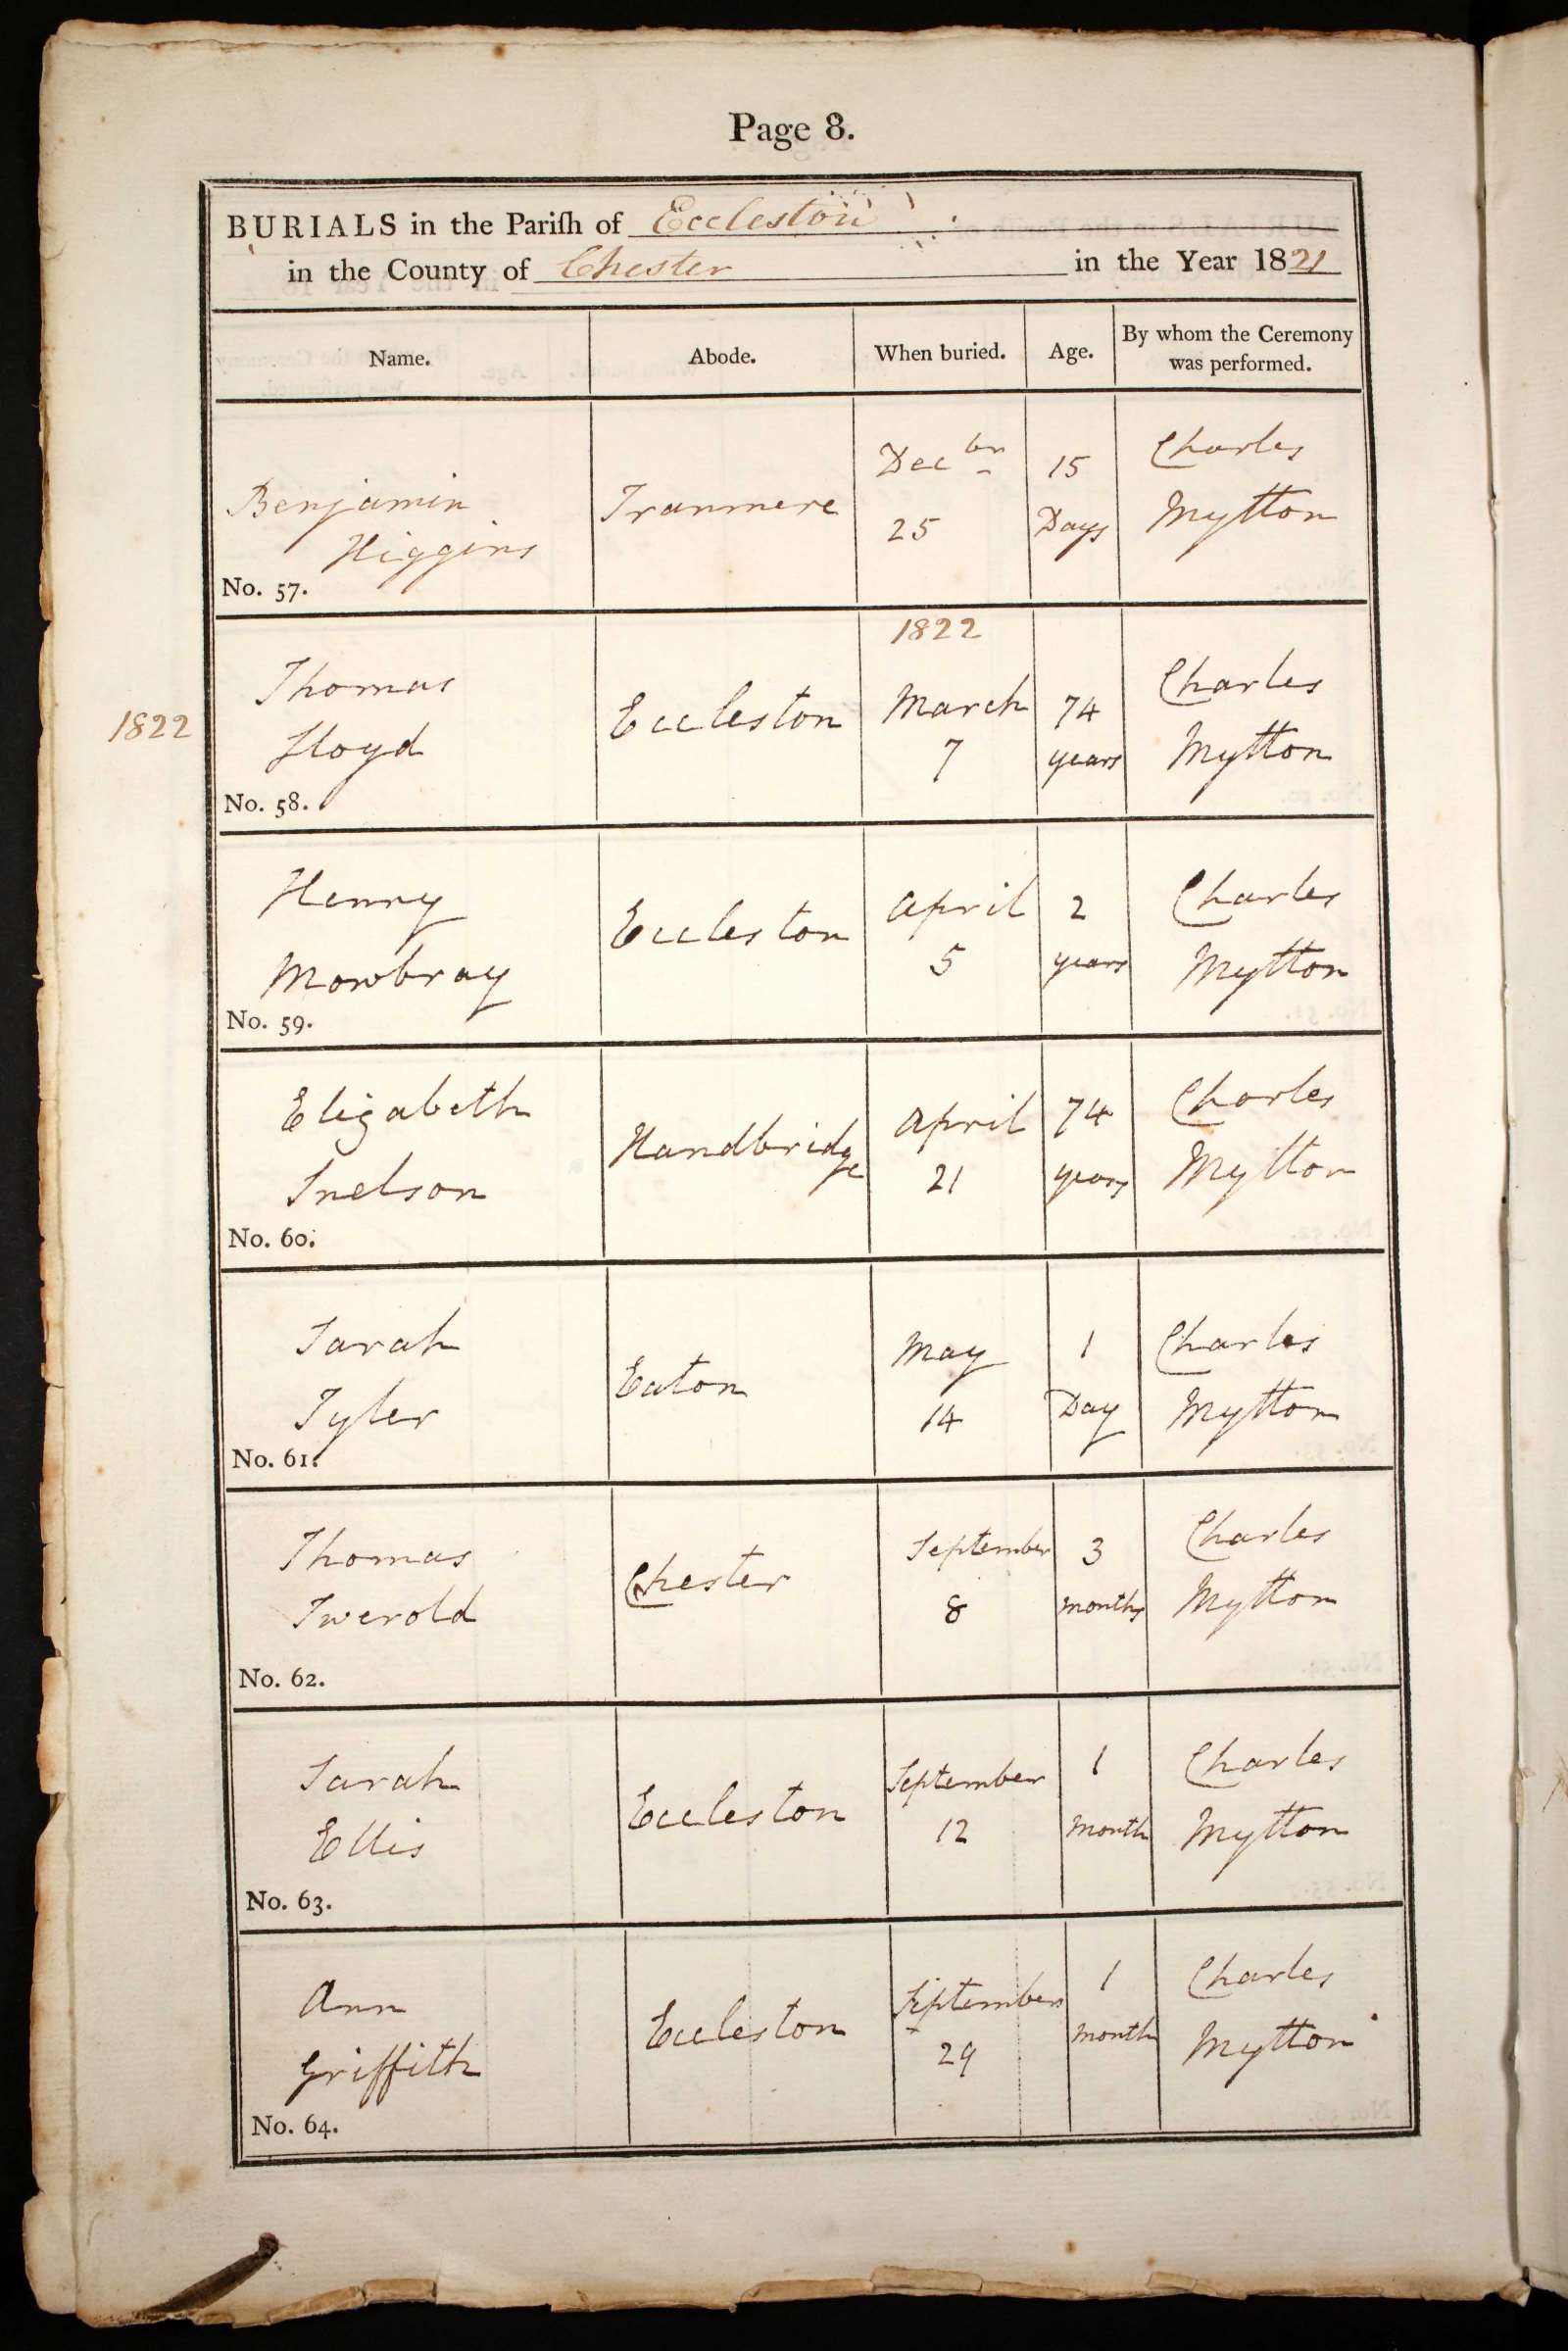 Page 8.
BURIALS in the Pariſh of Eccleston
in the County of Chester in the Year 1821
Name. Abode. When buried. Age. By whom the Ceremony was performed.
Benjamin Higgins
Tranmere
Decber 25
15 Days
Charles Mytton
No. 57.
1822
1822
Thomas Lloyd
Eccleston
March 7
74 years
Charles Mytton
No. 58.
Henry Mowbray
Eccleston
April 5
2 years
Charles Mytton
No. 59.
Elizabeth Snelson
Handbridge
April 21
74 years
Charles Mytton
No. 60.
Sarah Tyler
Eaton
May 14
1 Day
Charles Mytton
No. 61.
Thomas
Chester
September 8
3 months
Charles Mytton
No. 62.
Sarah Ellis
Eccleston
September 12
1 month
Charles Mytton
No. 63.
Ann Griffith
Eccleston
September 29
1 month
Charles Mytton
No. 64.